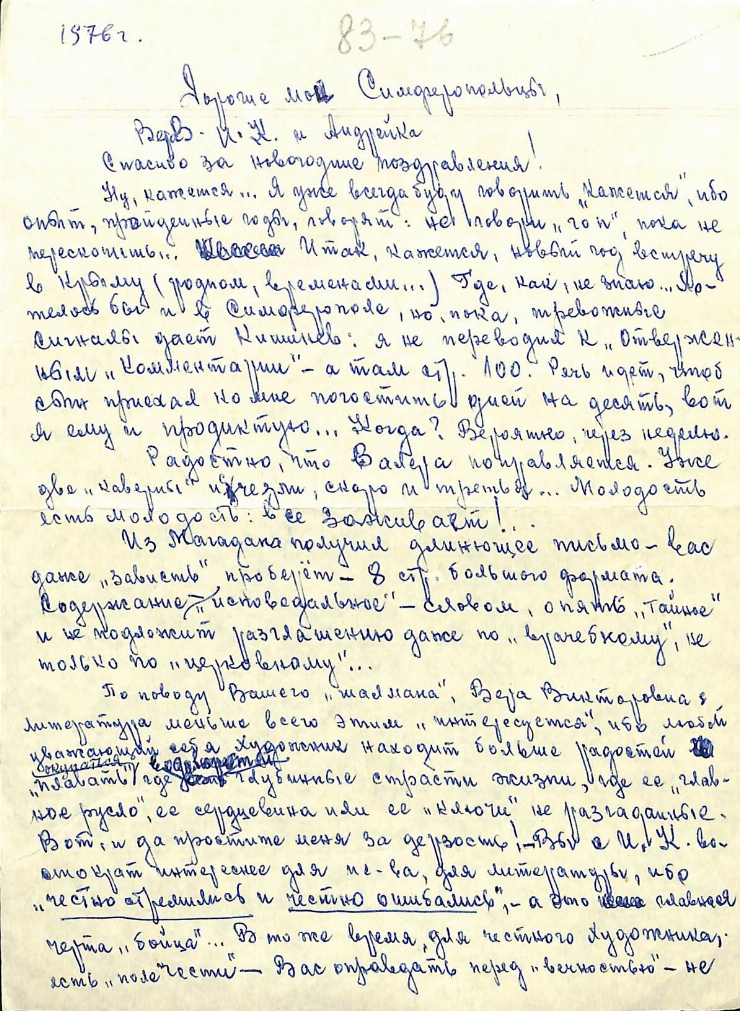 1976 г.
83-76
Дорогие мои Симферопольцы,
ВерВ. И. К. и Андрейка
Спасибо за новогодние поздравления!
Ну, кажется... Я уже всегда буду говорить „кажется", ибо
опыт, пройденные годы, говорят: не говори „гоп", пока не
перескочишь... Итак, кажется, новый год встречу
в Крыму (родном, временами...) Где, как, не знаю... Хо-
телось бы и в Симферополе, но, пока, тревожные
сигналы дает Кишинев: я не переводил к „Отвержен-
ным" „Комментарии" – а там стр. 100. Речь идет, чтоб
сын приехал ко мне погостить дней на десять, вот
я ему и продиктую... Когда? Вероятно, через неделю.
Радостно, что Валера поправляется. Уже
две „каверны" исчезли, скоро и третья... Молодость
есть молодость: все заживает!..
Из Магадана получил длинющее письмо – вас
даже „зависть" проберёт – 8 стр. большого формата.
Содержание – „исповедальное" – словом, опять „тайное"
и не подложит разглашению даже по „врачебному", не
только по „церковному"...
По поводу Вашего „шалмана", Вера Викторовна:
литература меньше всего этим „интересуется", ибо любой
уважающий себя Художник находит больше радостей
окунаться
„плавать" где глубинные страсти жизни, где ее „глав-
ное русло", ее сердцевина или ее „ключи" не разгаданные.
Вот, и да простите меня за дерзость! – Вы с И. К. во-
стократ интереснее для иск-ва, для литературы, ибо
„честно стремились и честно ошибались", – а это главная
черта „бойца"... В то же время, для честного Художника,
есть „поле чести" – Вас оправдать перед „вечностью" – не